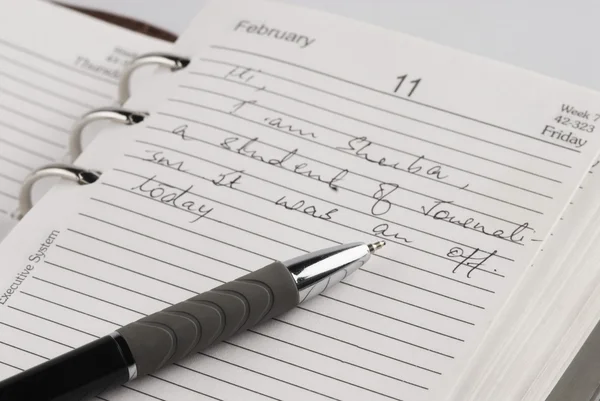 February
11
Week 7
42-323
Friday
Thursday
Hi,
I am Sheeba,
a student of Journali-
sm. It was an off.
today
Executive System